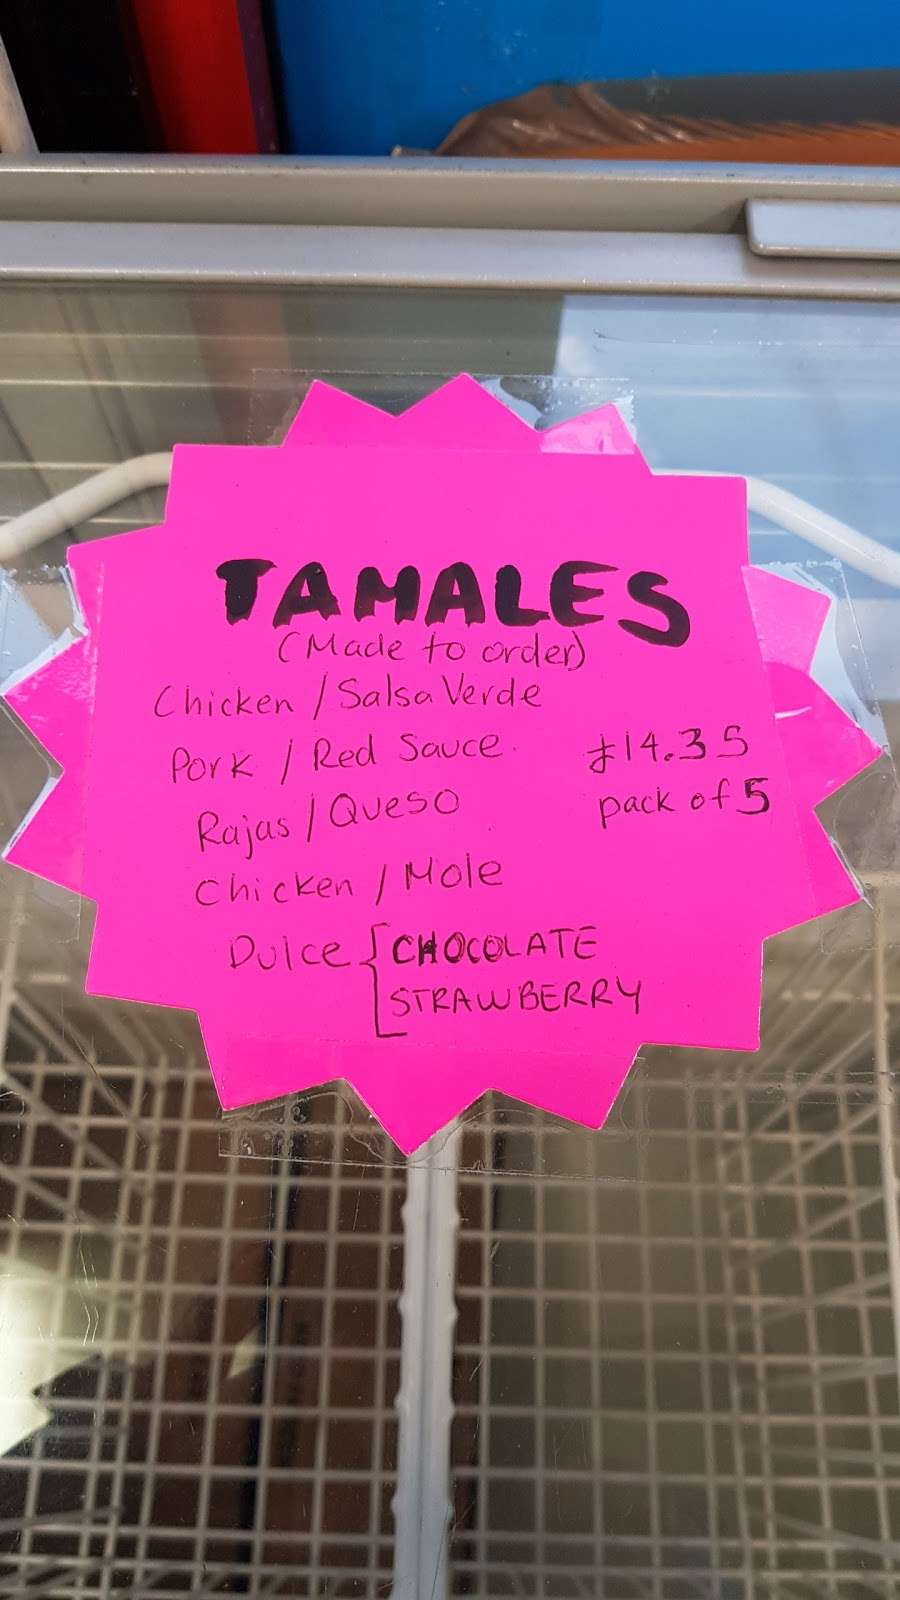 TAMALES
(Made to order)
Chicken / Salsa Verde
Pork / Red Sauce
£14.35
Rajas / Queso
pack of 5
Chicken / Mole
Dulce { CHOCOLATE
STRAWBERRY